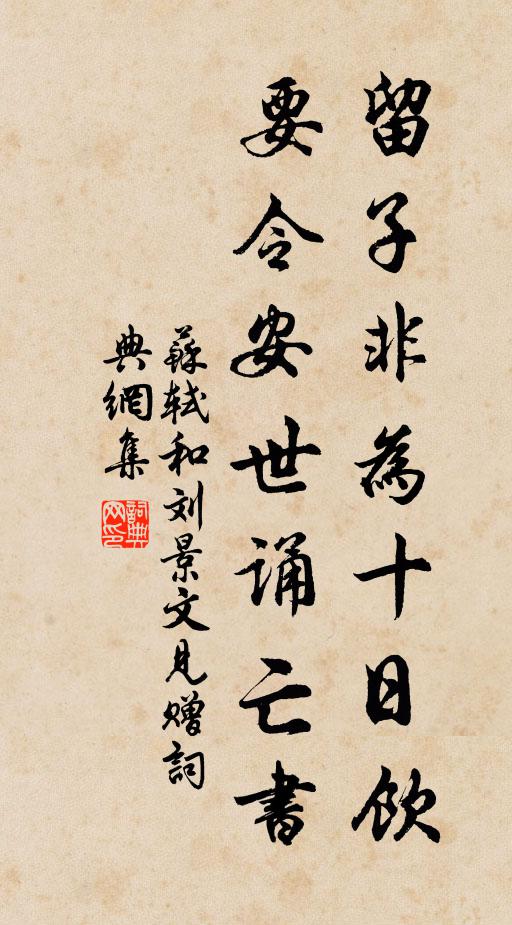 留子非為十日飲
要令安世誦亡書
蘇軾和刘景文見贈詞
典網集
詞典網印